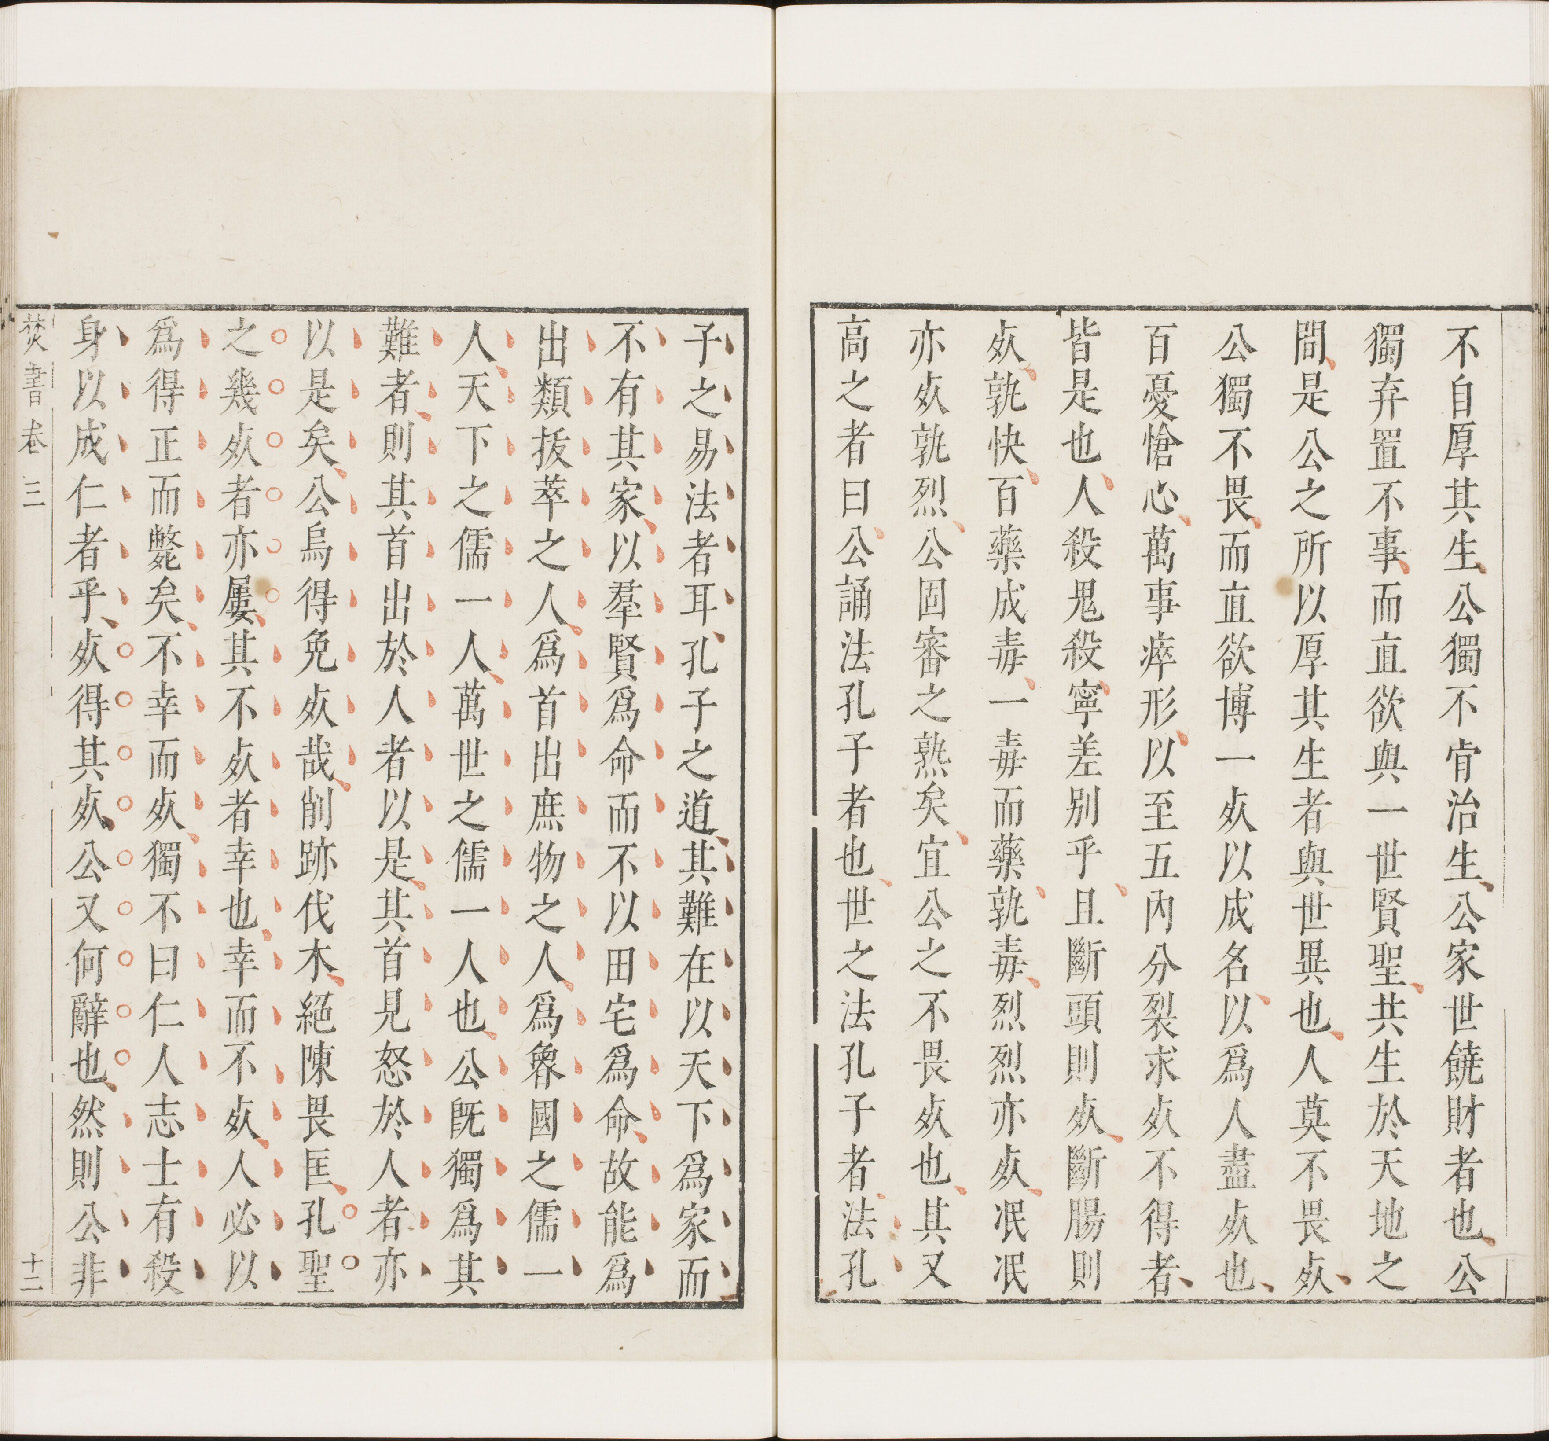 不自厚其生公獨不肻治生公家世饒財者也公
獨弃置不事而直欲與一世賢聖共生於天地之
間是公之所以厚其生者與世異也人莫不畏㱠
公獨不畏而直欲博一㱠以成名以爲人盡㱠也
百憂愴心萬事瘁形以至五內分裂求㱠不得者
皆是也人殺鬼殺寧差别乎且斷頭則㱠斷腸則
㱠孰快百藥成毒一毒而藥孰毒烈烈亦㱠泯泯
亦㱠孰烈公固審之熟矣宜公之不畏㱠也其又
高之者曰公誦法孔子者也世之法孔子者法孔
子之易法者耳孔子之道其難在以天下爲家而
不有其家以羣賢爲命而不以田宅爲命故能爲
出類拔萃之人爲首出庶物之人爲魯國之儒一
人天下之儒一人萬世之儒一人也公旣獨爲其
難者則其首出於人者以是其首見怒於人者亦
以是矣公烏得免㱠哉削跡伐木絕陳畏匡孔聖
之幾㱠者亦屢其不㱠者幸也幸而不㱠人必以
爲得正而斃矣不幸而㱠獨不曰仁人志士有殺
身以成仁者乎㱠得其㱠公又何辭也然則公非
焚書卷三 十二